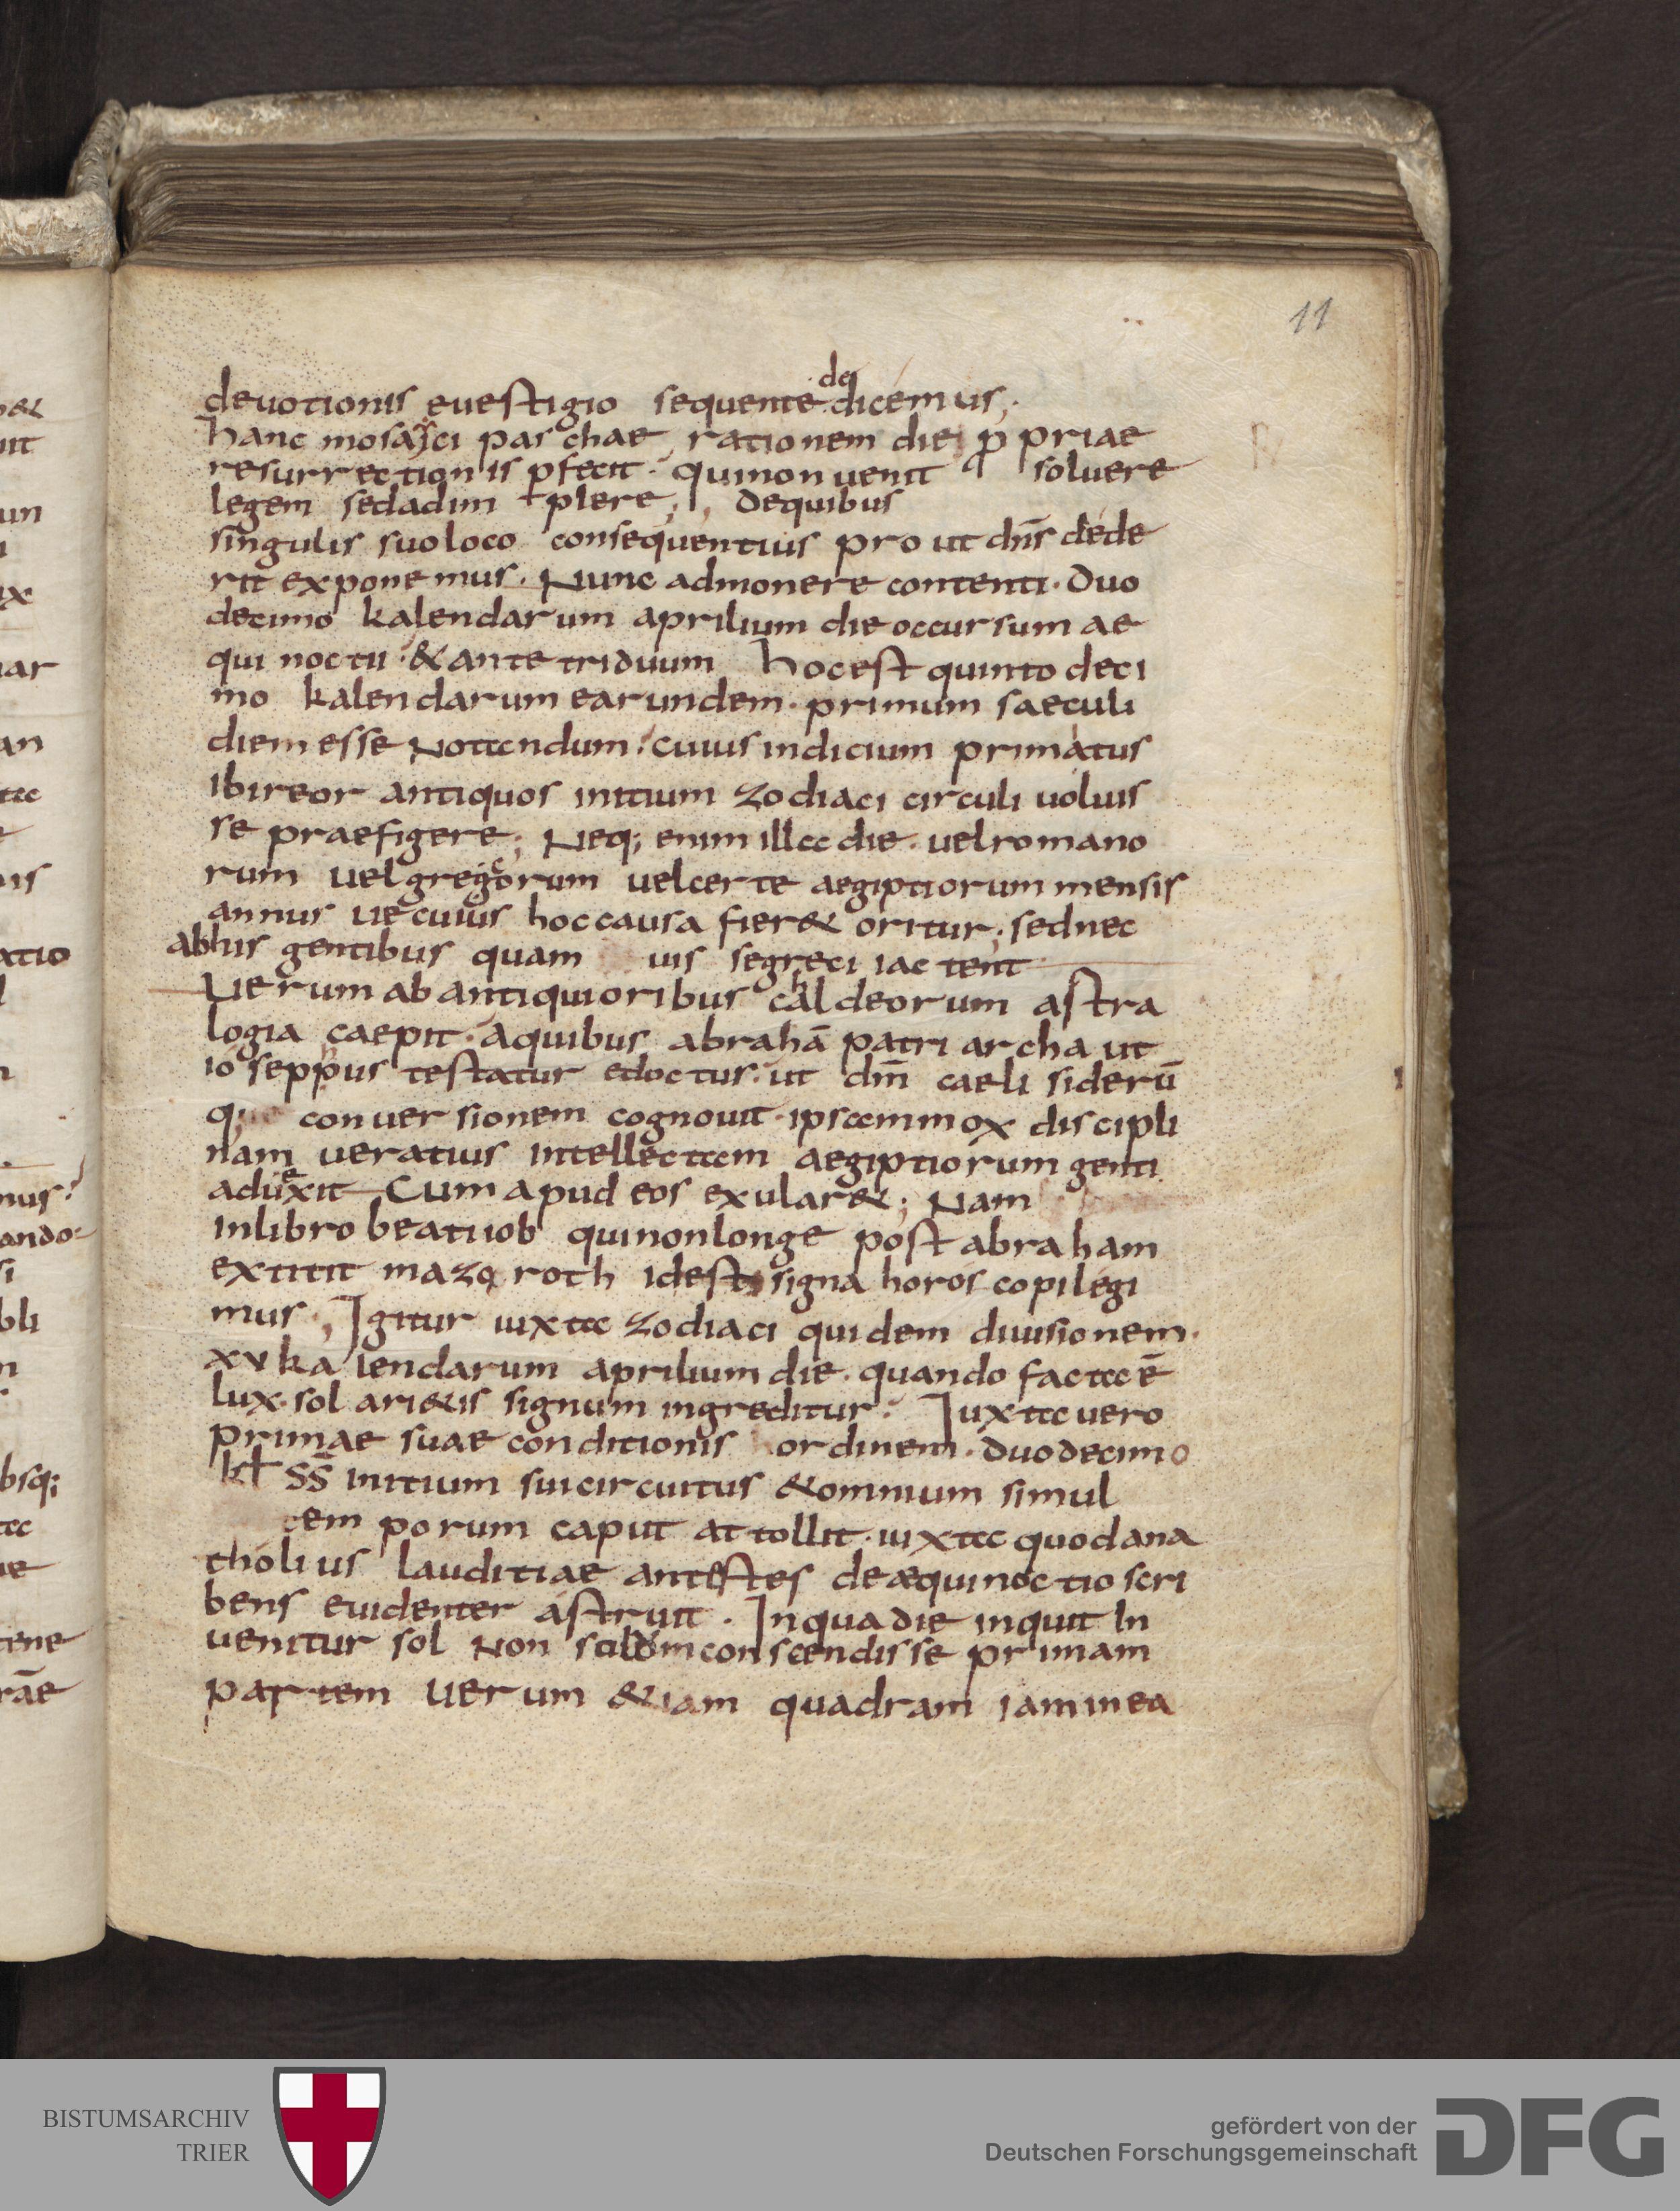 11
de
deuotionis euestigio sequente dicemus;
hanc mosayci paschae rationem die ꝓpriae
resurrectionis ꝑfecit. quinon uenit soluere
legem sedadim plere; dequibus
singulis suoloco consequentius pro ut dn̄s dede
rit exponemus. Nunc admonere contenti. duo
decimo kalendarum aprilium die occursum ae
qui noctii & ante triduum hocest quinto deci
mo kalendarum earundem. primum saeculi
diem esse Notandum. cuius indicium primatus
ibi reor antiquos initium zodiaci circuli uoluis
se praefigere; Neq; enim illa die. uelromano
rum uel gregorum uelcerte aegiptiorum mensis
annus ue cuius hoc causa fier& oritur; sednec
abhis gentibus quam uis segreci iactent
Uerum ab antiquioribus chaldeorum astra
logia caepit. aquibus abrahā patriarcha ut
ioseppus testatur edoctus. ut dm̄ caeli siderū
q; conuersionem cognouit. ipsam mox discipli
nam ueratius intellectam aegiptiorum genti
aduexit Cum apud eos exular&; Nam
inlibro beati iob quinonlonge post abraham
extitit mazoroth idest signa horoscopi legi
mus; Igitur iuxta zodiaci quidem diuisionem.
xv kalendarum aprilium die. quando facta ē
lux. sol ari&is signum ingreditur. Iuxta uero
primae suae conditionis ordinem. duodecimo
kł ss̄ initium suicircuitus & omnium simul
tem porum caput attollit. iuxta quod ana
tholius lauditiae antestes de aequinoctio scri
bens euidenter astruit. Inqua die inquit In
uenitur sol Non solum conscendisse primam
partem uerum &iam quadram iam inea
BISTUMSARCHIV
TRIER
gefördert von der
Deutschen Forschungsgemeinschaft
DFG